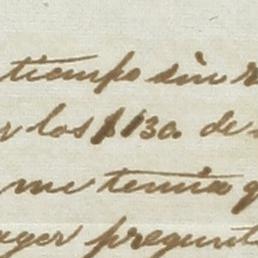 tiempo sin
los $130. de
me tenia
pregunt